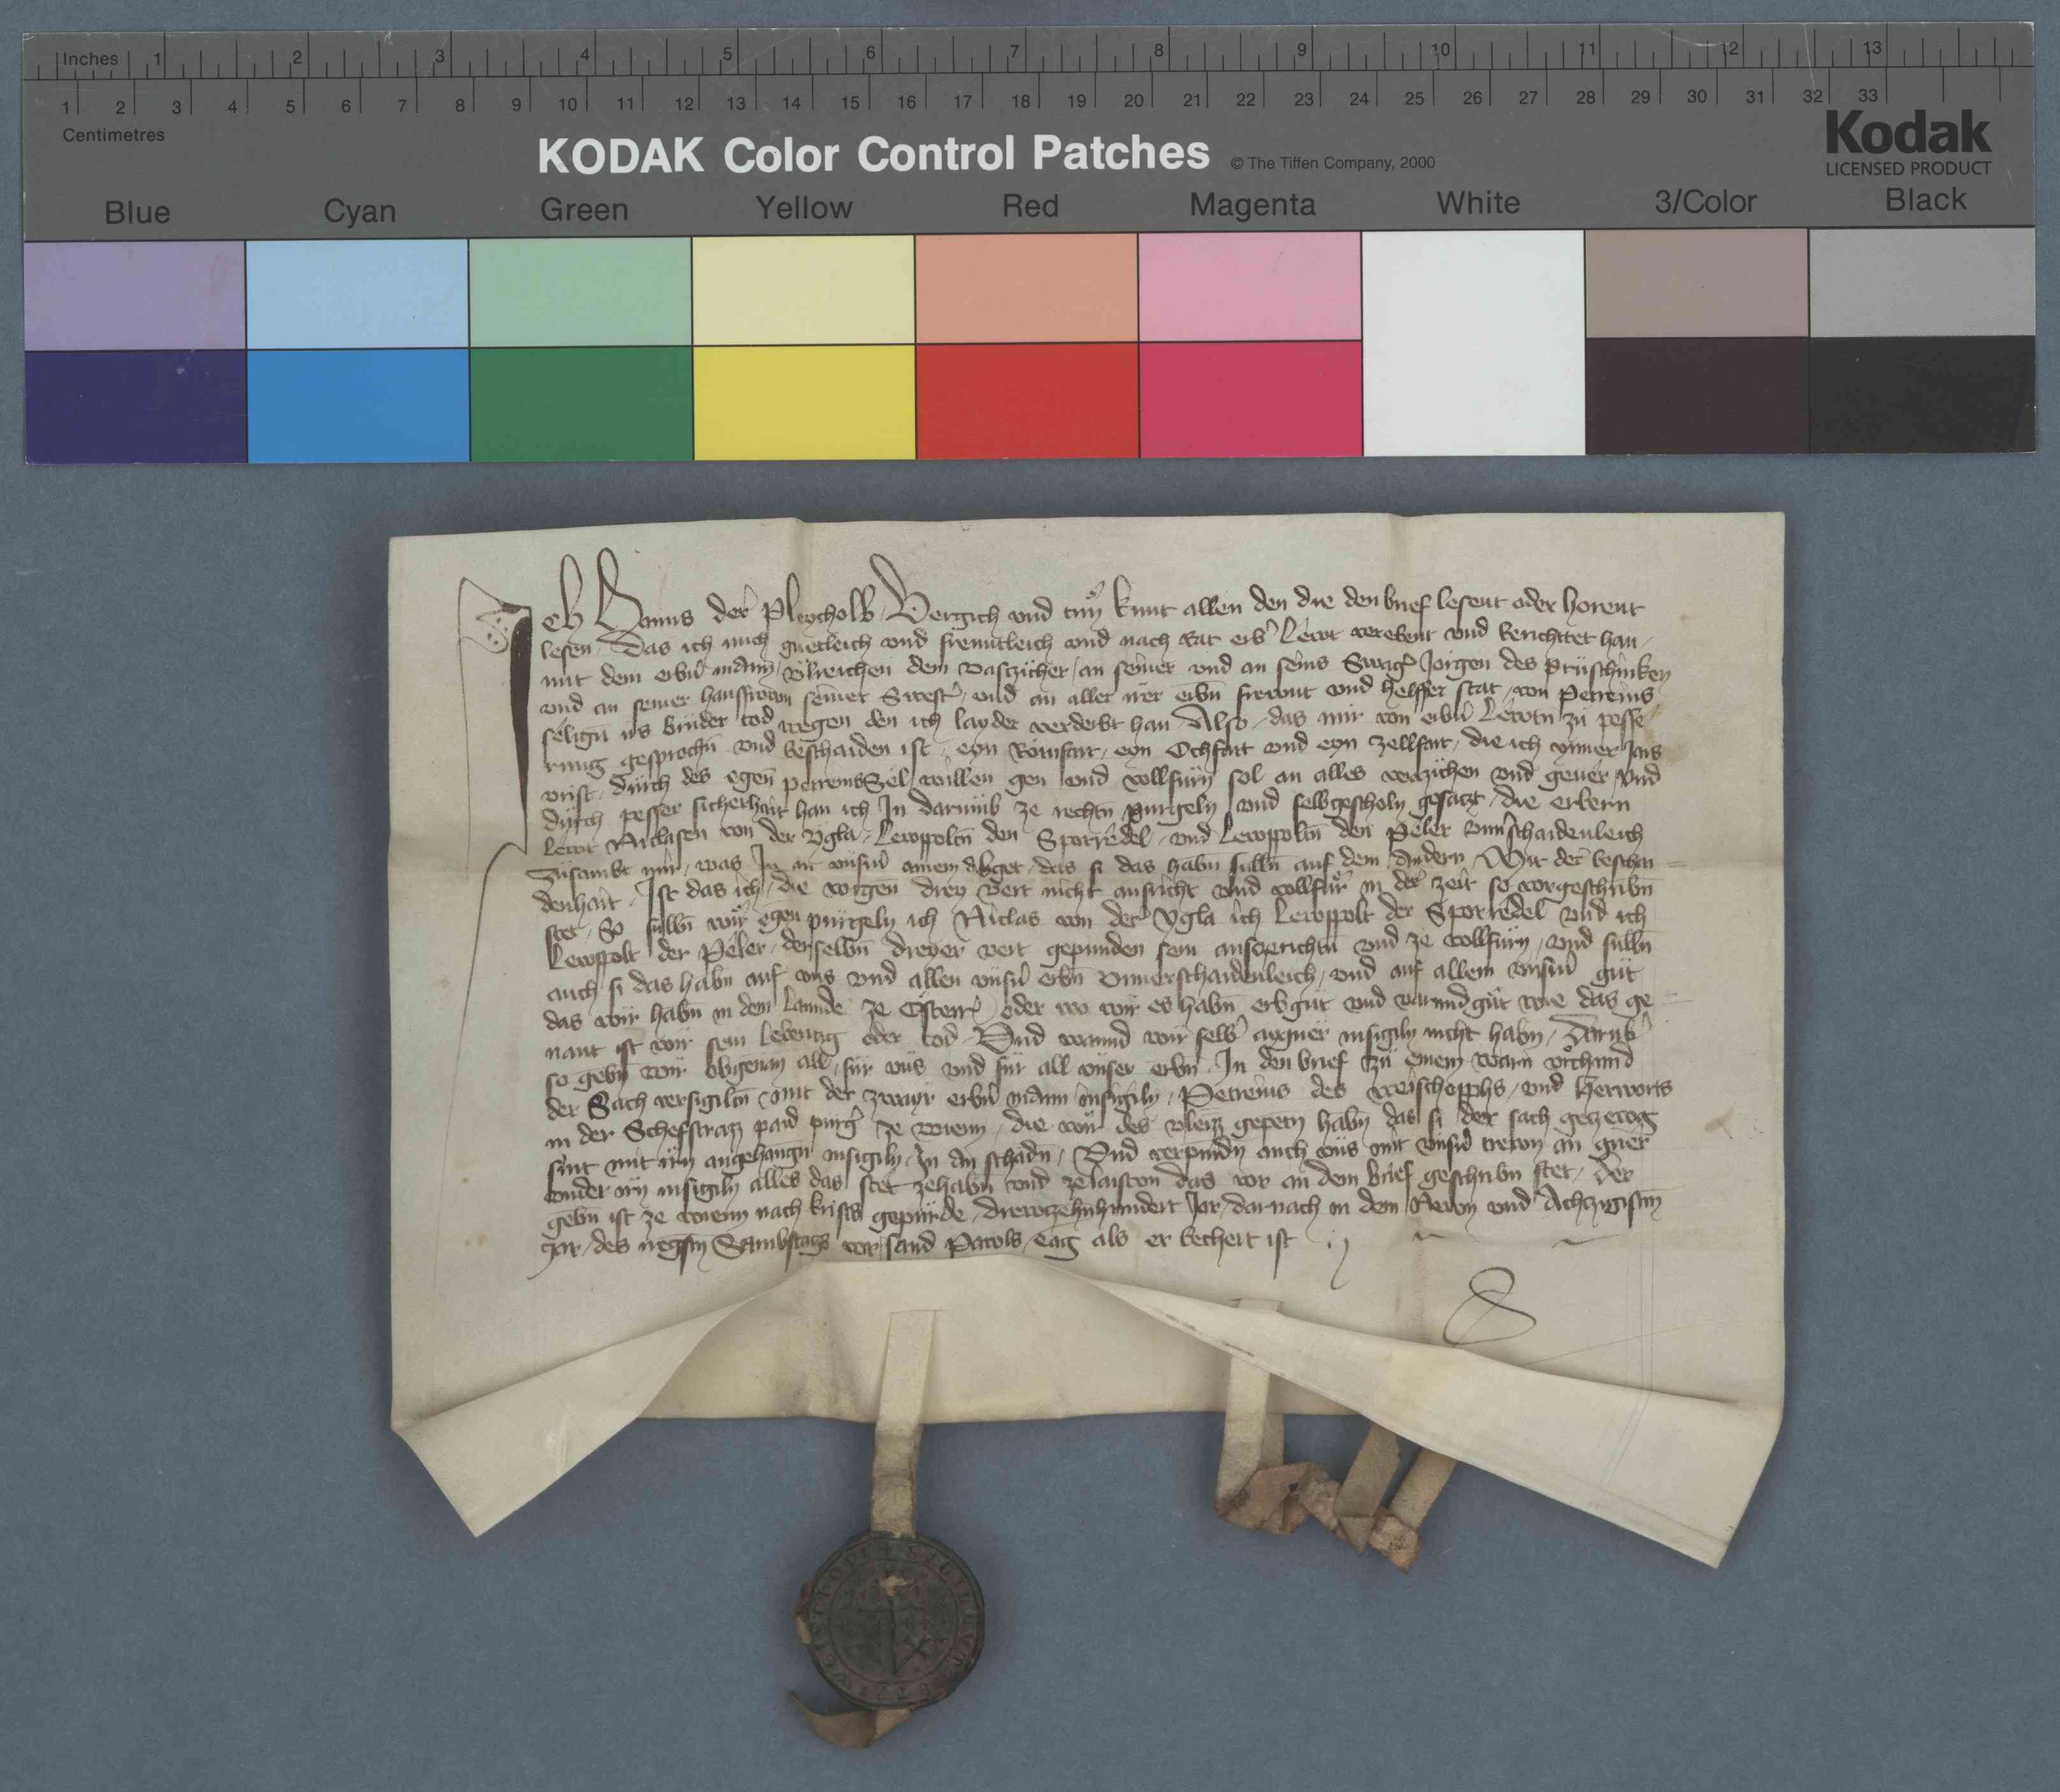 Inches 1 2 3 4 5 6 7 8 9 10 11 12 13
1 2 3 4 5 6 7 8 9 10 11 12 13 14 15 16 17 18 19 20 21 22 23 24 25 26 27 28 29 30 31 32 33
Centimetres
KODAK Color Control Patches © The Tiffen Company, 2000 Kodak
LICENSED PRODUCT
Blue Cyan Green Yellow Red Magenta White 3/Color Black
Ich Hanns der Vergich vnd tuͦn kunt allen den die den brief lesent oder horent
lesen Das ich mich guetleich vnd freuntleich vnd nach rat erbˀ Lewt verebent vnd berichttet han
mit dem erbn̄ mann Vlreichen dem vaszicher an seiner vnd an seins Swagˀ Jorgen des Prüschinken
vnd an seiner hausfrown seiner Swestˀ vnd an aller irer erbn̄ frewnt vnd helffer stat von Petreins
selign̄ irs bruder tod wegen den ich layder verderbt han Also das mir von erbn̄ Lewtn zu pesse
rung gesprochn̄ vnd beschaiden ist eyn Romfart eyn Ochfart vnd eyn zellfart die ich ynner Jars
vrist durch des egen̄ petreins Sel willen gen vnd vollfurn sol an alles verziehen vnd geuer vnd
durch pesser sicherhait han ich In darumb ze rechtn purgeln vnd selbgescholn gesaczt die erbern
Lewt Niclasen von der Ygla Lewppoltn̄ den Sporredel vnd Lewppoltn̄ den Peler vnuˀschaidenleich
zusambt mir was In an vnsrn̄ ainem abget das si das habn̄ sulln̄ auf dem andern Mit der beschai
denhait Ist das ich die vorgen̄ drey vert nicht ausricht vnd vollfur in der zeit so vorgeschribn̄
stet So sulln̄ wir egen̄ purgeln ich Niclas von der Ygla ich Lewppolt der Sporredel vnd ich
Lewppolt der Peler derselbn̄ dreyer vert gepunden sein auszerichtn̄ vnd ze vollfurn vnd sulln̄
auch si das habn̄ auf vns vnd allen vnsrn̄ erbn̄ vnuerschaidenleich vnd auf allem vnsrm̄ gut
das wir habn̄ in dem Lannde ze Osterrˀ oder wo wir es habn̄ erbgut vnd varundgut wie das ge
nant ist wir sein lebentig oder tod Vnd wannd wir selbˀ aygner insigily nicht habn̄ Darubˀ
so gebn̄ wir obgenan̄ all fur vns vnd fur all vnser erbn̄ In den brief zu einem warn vrchund
der Sach versigiltn̄ mit der zwayr erbn̄ mann insigily Petreins des vnd Herworts
in der Schefstrazz paid purgˀ ze wienn die wir des vleizz gepetn habn̄ das si der sach gezewg
sint mit irn angehangn̄ insigily In an schadn̄ Vnd verpindn auch vns mit vnsrn̄ trewn an geuer
vnder irn insigily alles das stet zehabn̄ vnd zelaisten das vor an dem brief geschribn̄ stet Der
gebn̄ ist ze wienn nach kristi gepurde drewczehnhundert Jar darnach in dem Newn vnd Achzigistm̄
Jar des negstn̄ Sambstags vor sand Pawls tag als er bechert ist